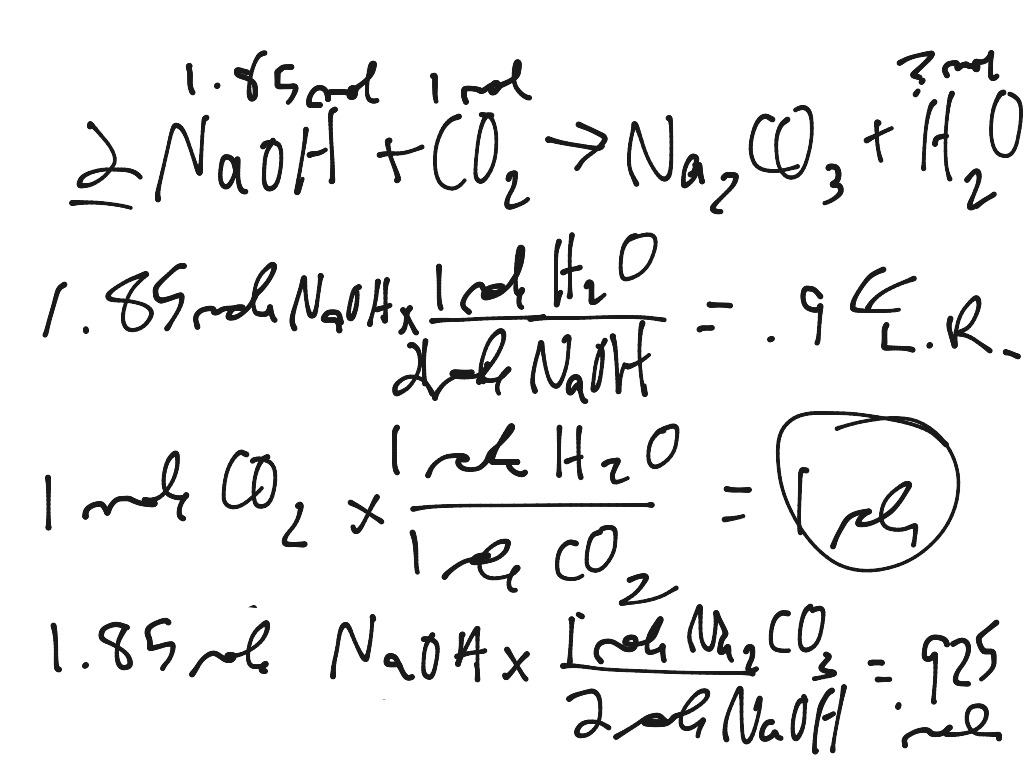 1.85 mol 1 mol ? mol
2 NaOH + CO2 → Na2CO3 + H2O
1.85 mole NaOH x 1 mol H2O / 2 mole NaOH = .9 ← L.R.
1 mole CO2 x 1 mole H2O / 1 mole CO2 = 1 mole
1.85 mol NaOH x 1 mole Na2CO3 / 2 mole NaOH = .925 mole